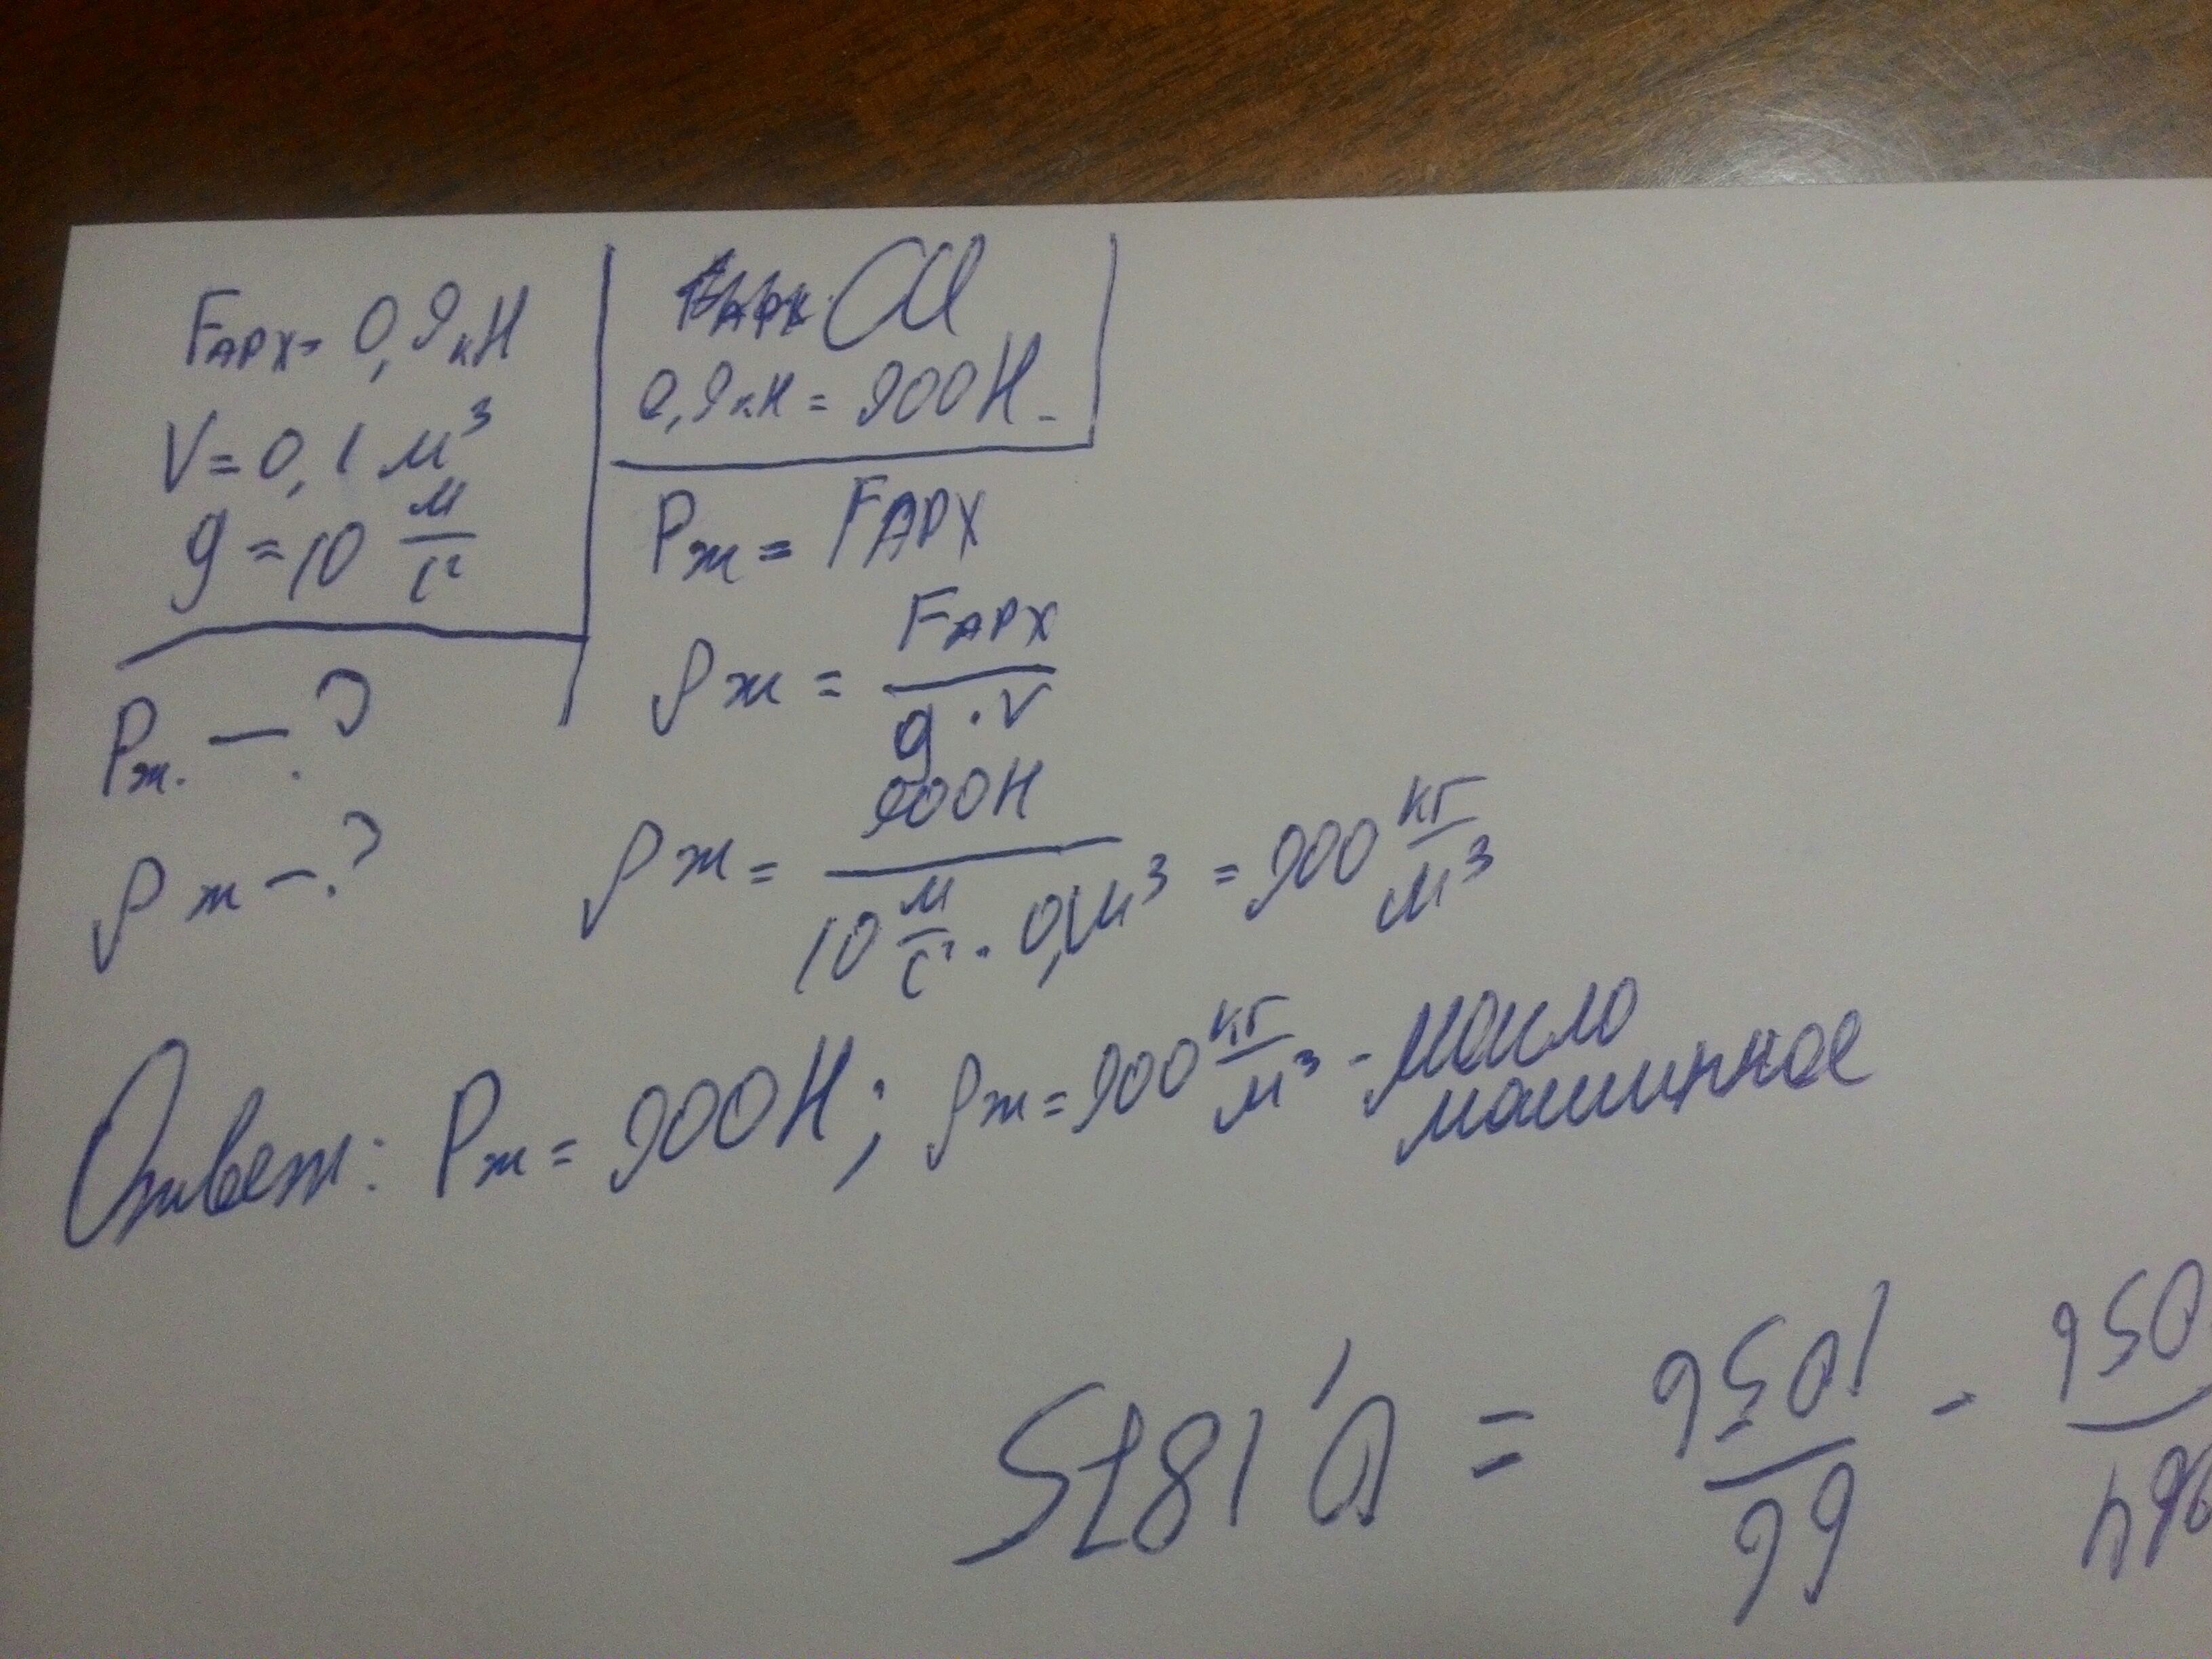 Fарх = 0,9 кН
V = 0,1 м³
g = 10 м/с²
Pж. — ?
ρж — ?
СИ
0,9 кН = 900 Н
Pж = Fарх
ρж = Fарх / g · V
ρж = 900 Н / 10 м/с² · 0,1 м³ = 900 кг/м³
Ответ: Pж = 900 Н; ρж = 900 кг/м³ - масло
машинное
66 / 1056 = 0,1875